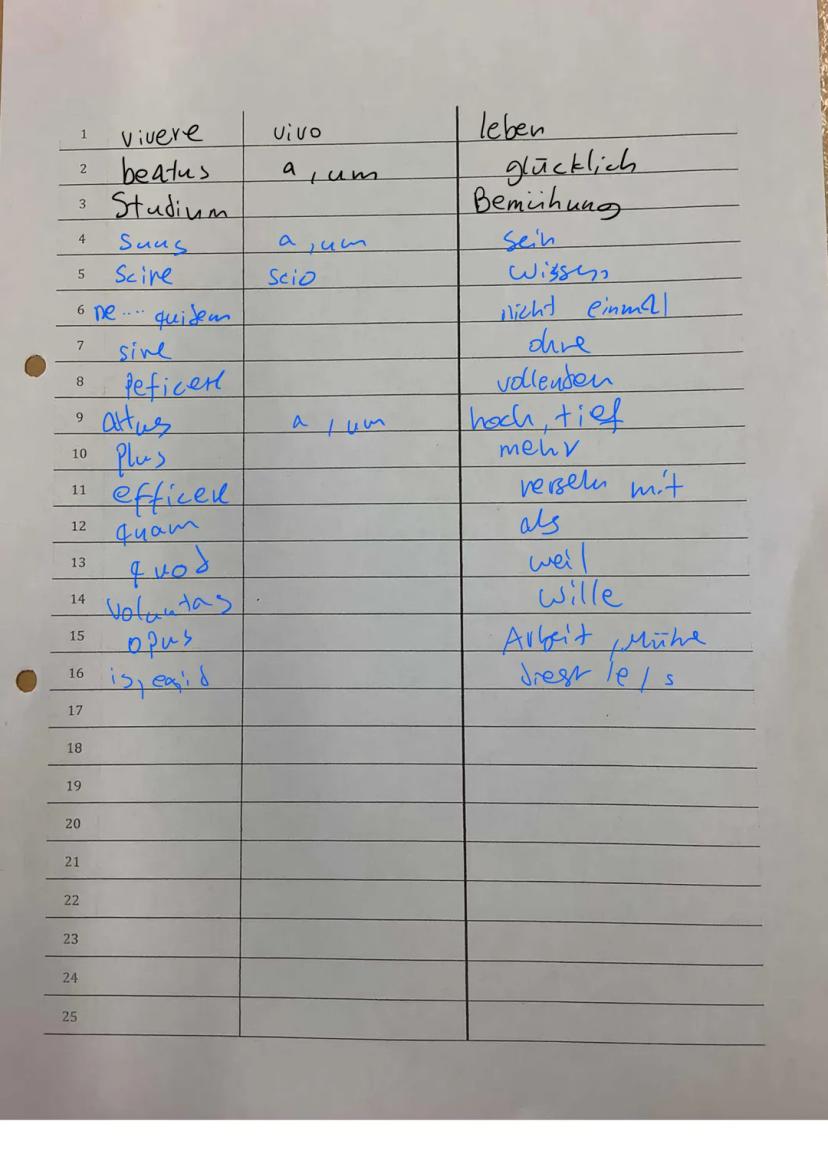 1 vivere vivo leben
2 beatus a, um glücklich
3 Studium Bemühung
4 suus a, um sein
5 Scire scio wissen
6 ne .... quidem nicht einmal
7 sine ohne
8 peficere vollenden
9 altus a, um hoch, tief
10 Plus mehr
11 efficere mit
12 quam als
13 quod weil
14 Voluntas Wille
15 opus Arbeit, Mühe
16 is, ea, id dieser /e / s
17
18
19
20
21
22
23
24
25